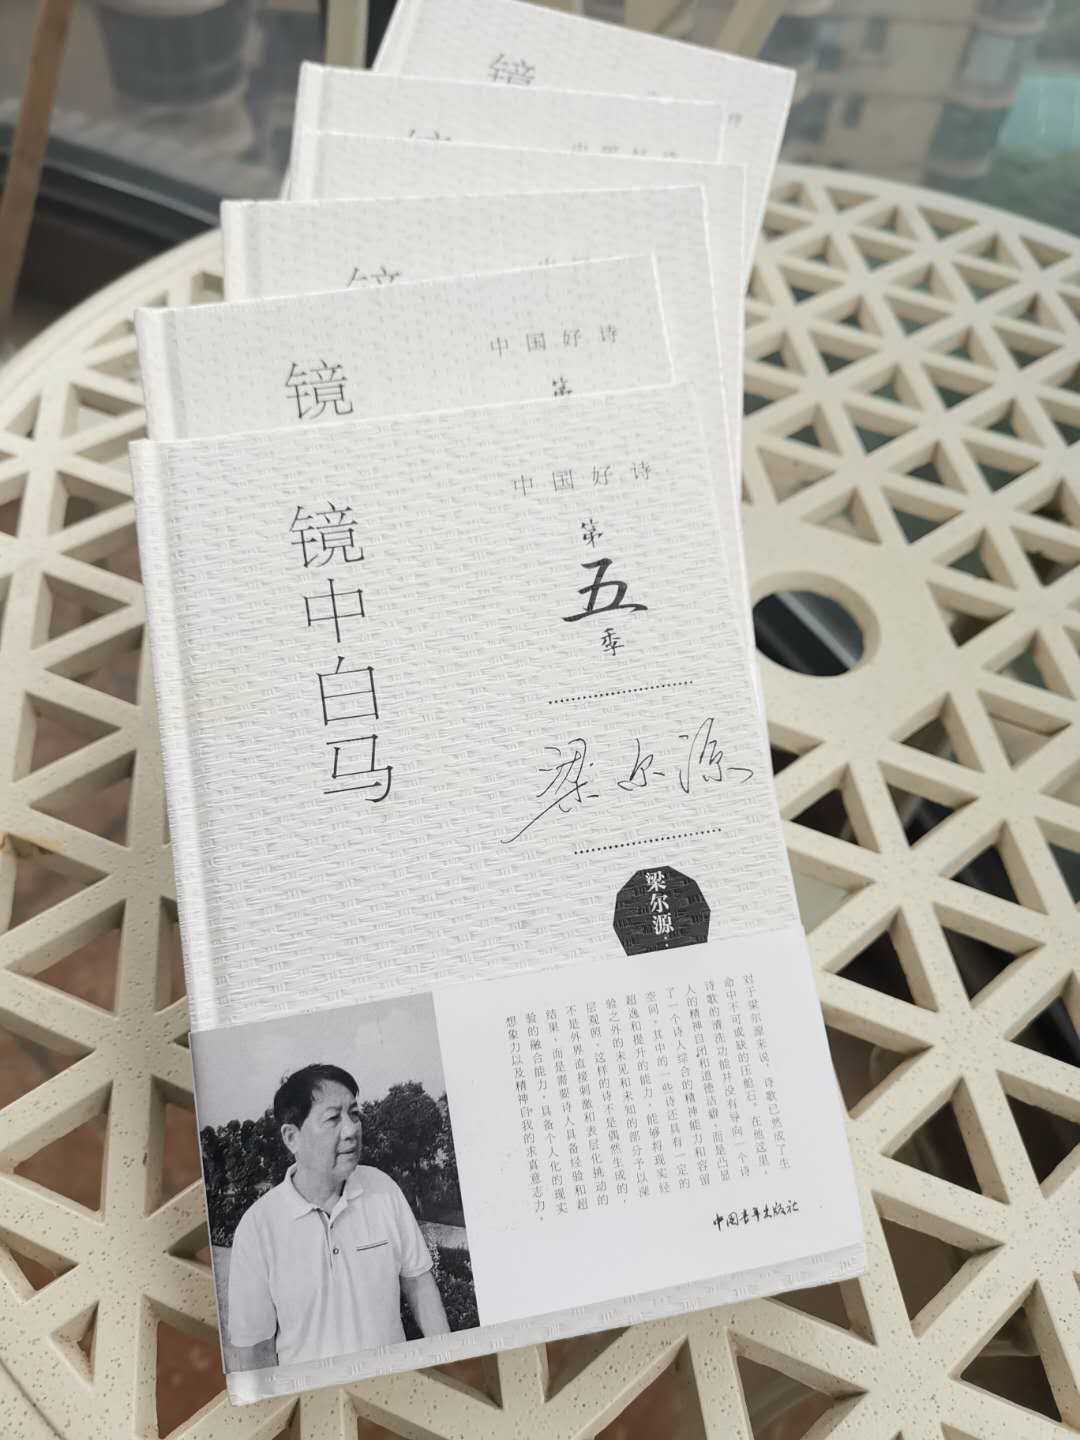 镜
镜
中国好诗
第
镜中白马
中国好诗
第
五
季
梁尔源
梁尔源：
对于梁尔源来说，诗歌已然成了生
命中不可或缺的压舱石。在他这里，
诗歌的清洗功能并没有导向一个诗
人的精神自闭和道德洁癖，而是凸显
了一个诗人综合的精神能力和容留
空间，其中的一些诗还具有一定的
超逸和提升的能力，能够将现实经
验之外的未见和未知的部分予以深
层观照，这样的诗不是偶然生成的，
不是外界直接刺激和表层化挑动的
结果，而是需要诗人具备经验和超
验的融合能力，具备个人化的现实
想象力以及精神自我的求真意志力。
中国青年出版社